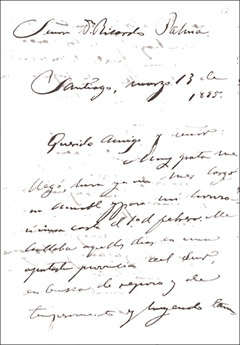 Señor D. Ricardo Palma.
Santiago, marzo 13 de
1885.
Querido Amigo y señor
Muy grata me
llegó, hara ya un mes largo
su amable y para mi honrosa
carta del 1º de febrero. Me
hallaba aquellos dias en una
apartada provincia del Sur,
en busca de reposo y de
temperamento y huyendo